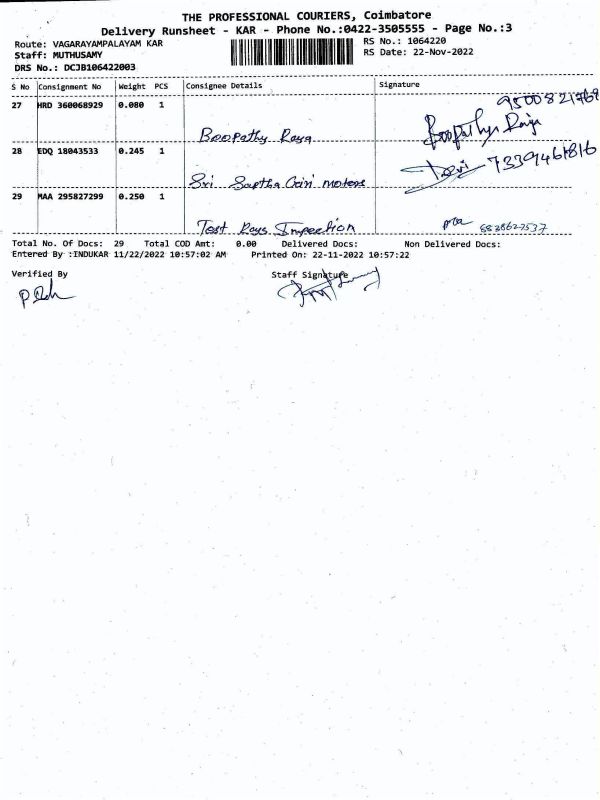 THE PROFESSIONAL COURIERS, Coimbatore
Delivery Runsheet - KAR - Phone No.:0422-3505555 - Page No.:3
Route: VAGARAYAMPALAYAM KAR RS No.: 1064220
Staff: MUTHUSAMY RS Date: 22-Nov-2022
DRS No.: DCJB106422003
S No Consignment No Weight PCS Consignee Details Signature
27 HRD 360068929 0.080 1 9500821768
Boopathy Raya Boopathy Raya
28 EDQ 18043533 0.245 1 Devi 7339461816
Sri Saptha Giri motors
29 MAA 295827299 0.250 1
Test Rays Inspection 6838627537
Total No. Of Docs: 29 Total COD Amt: 0.00 Delivered Docs: Non Delivered Docs:
Entered By :INDUKAR 11/22/2022 10:57:02 AM Printed On: 22-11-2022 10:57:22
Verified By Staff Signature